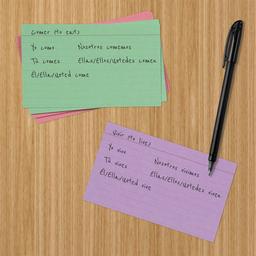 Comer (to eat)
Yo como Nosotros comemos
Tú comes Ellos/Ellas/Ustedes comen
Él/Ella/Usted come
Vivir (to live)
Yo vivo Nosotros vivimos
Tú vives Ellos/Ellas/Ustedes viven
Él/Ella/Usted vive